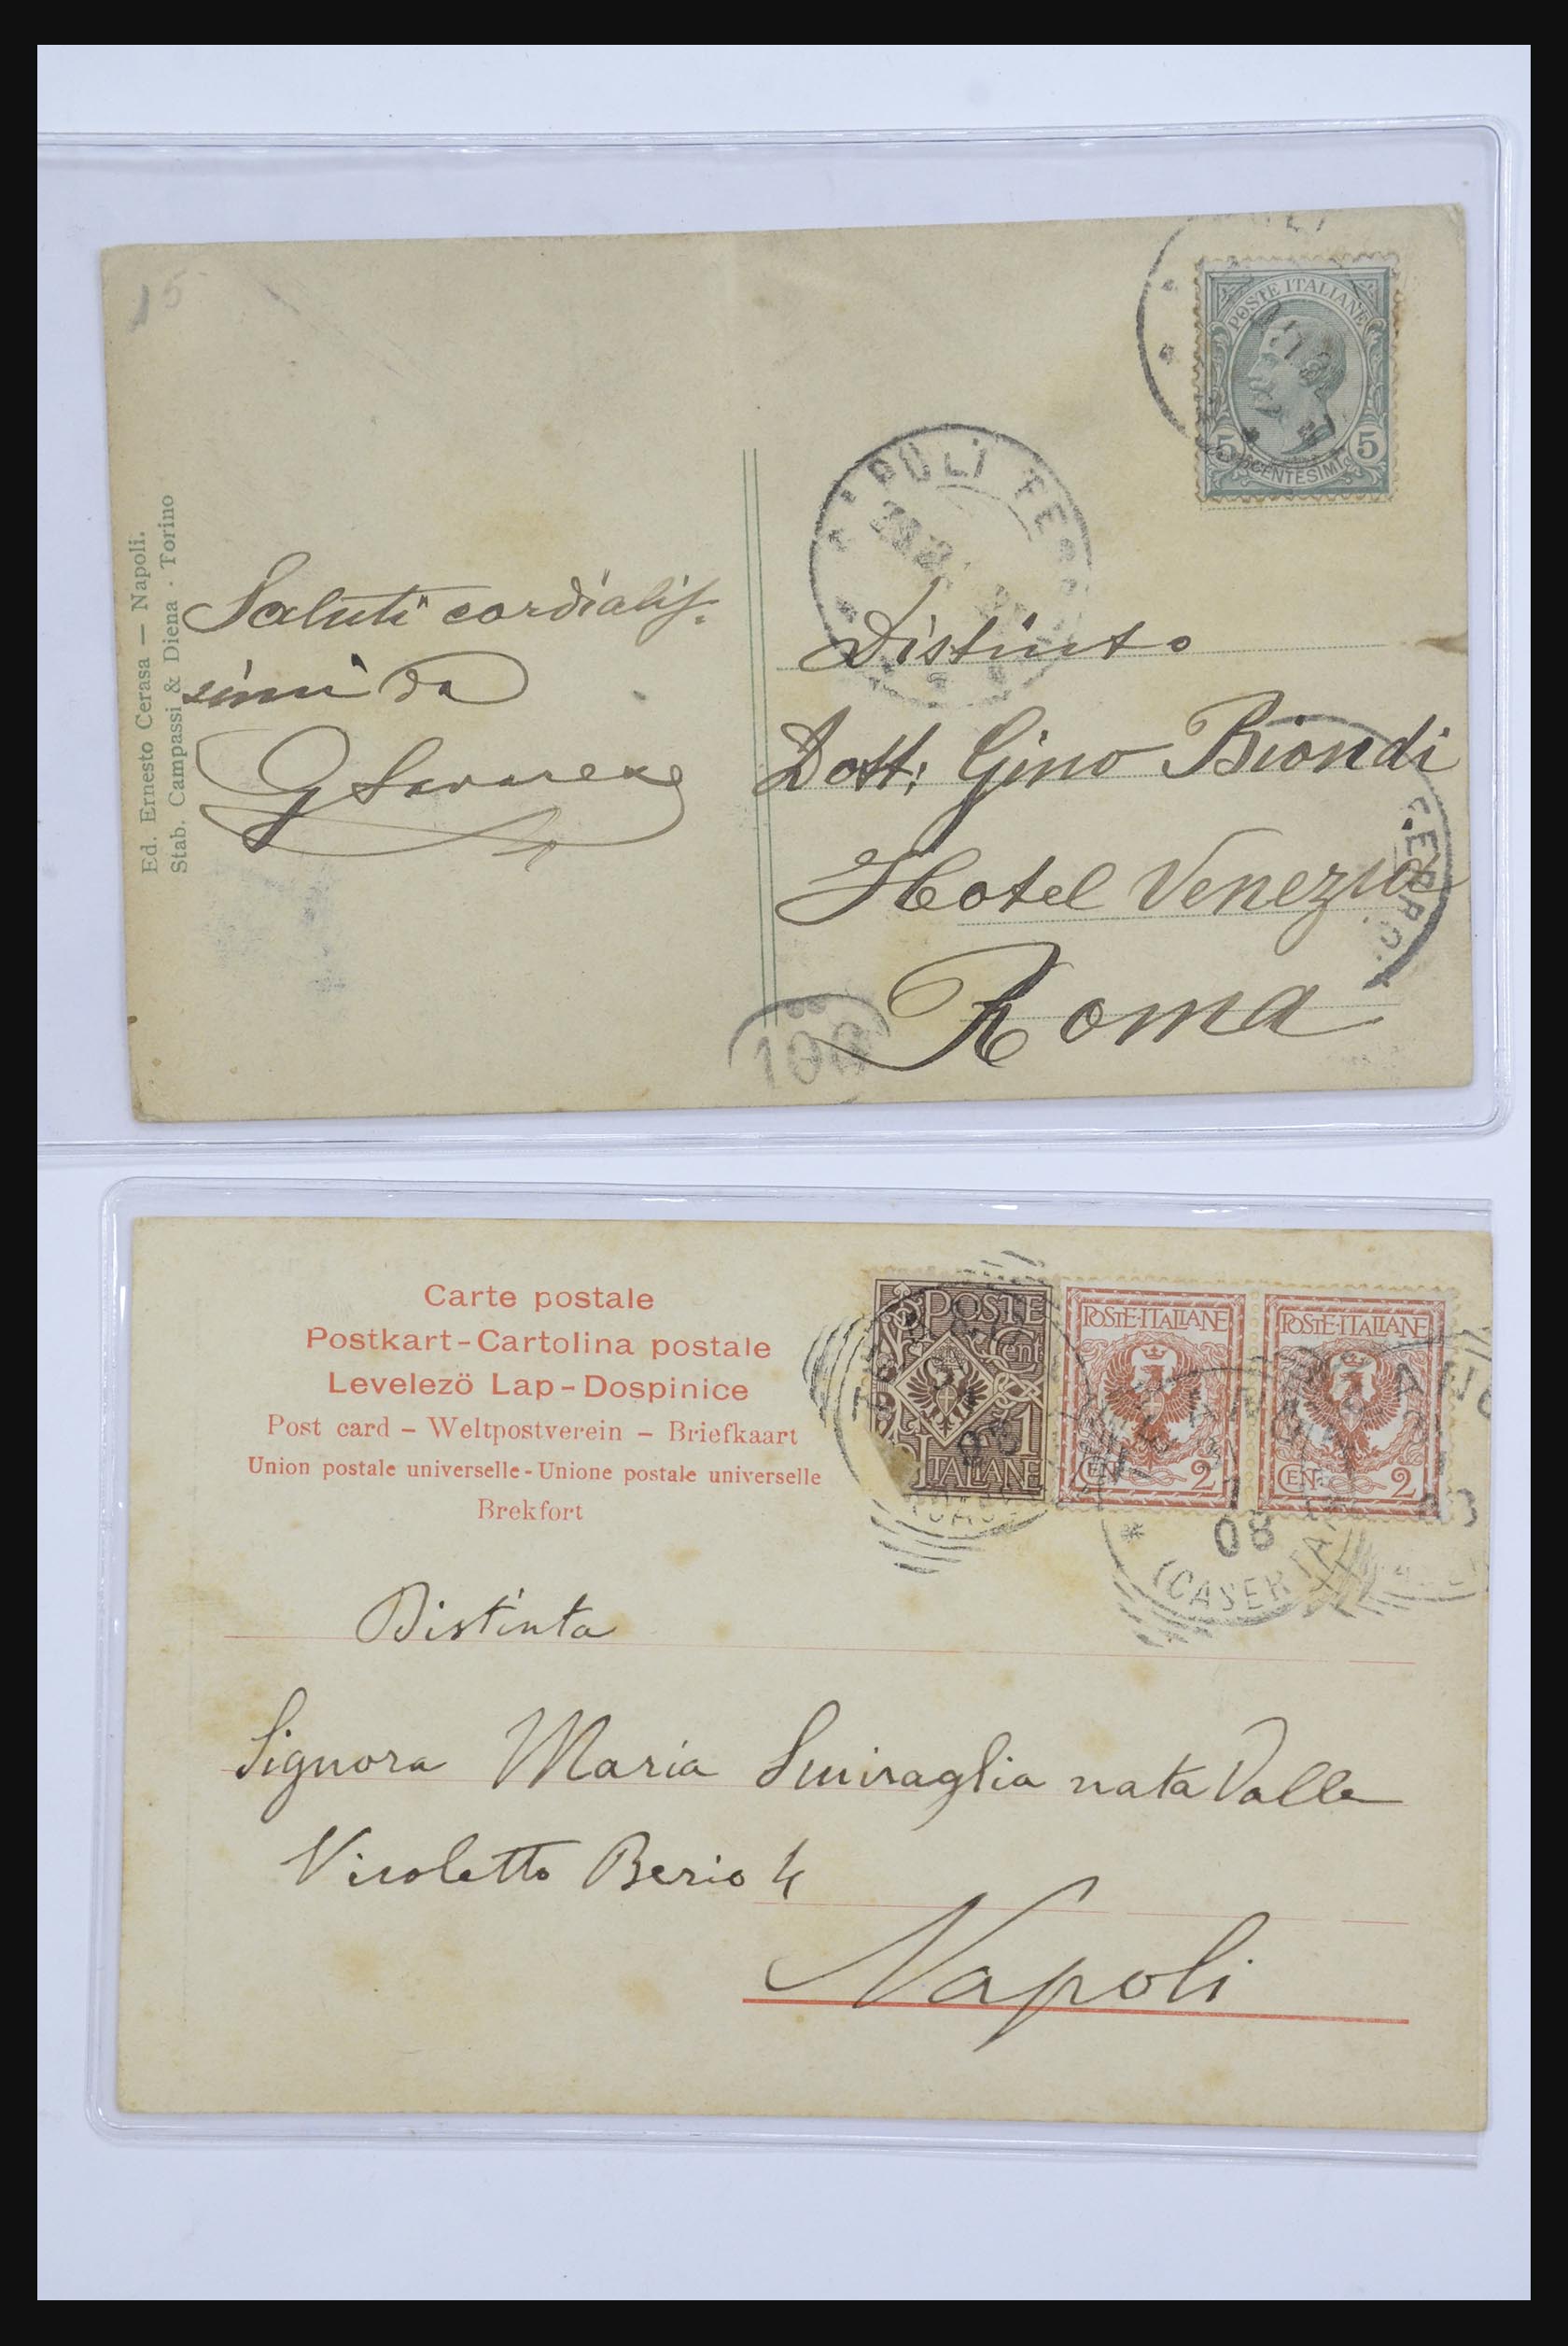 5
POSTE ITALIANE
5 CENTESIMI 5
NAPOLI FE
Ed. Ernesto Cerasa — Napoli.
Stab. Campassi & Diena - Torino
Saluti cordialis-
simi da
Distinto
Dott: Gino Biondi
Hotel Venezia
Roma
FERRO
100
Carte postale
Postkart-Cartolina postale
Levelezö Lap-Dospinice
Post card – Weltpostverein – Briefkaart
Union postale universelle - Unione postale universelle
Brekfort
POSTE
Cent
1
ITALIANE
POSTE·ITALIANE
CEN. 2
POSTE·ITALIANE
CEN. 2
08
(CASERTA)
Distinta
Signora Maria Smiraglia nata Valle
Vicoletto Berio 4
Napoli